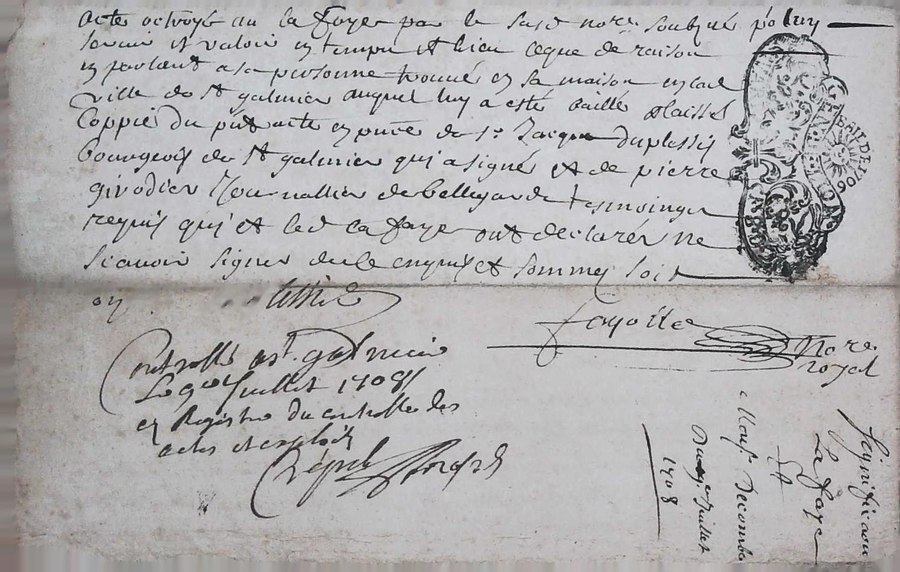 acte octroyé au la faye par le susd no.re soubzné p.r luy
servir et valoir en temps et lieu ceque de raison
en parlant a sa personne trouvé en sa maison en lad
ville de s.t galmier auquel luy a esté baillé & laissé
Coppie du p.nt acte en p.nce de s.r Jacque duplessis
bourgeois de s.t galmier qui a signé et de pierre
girodier Journallier de bellegarde tesmoings
requis qui et led la faye ont declarés ne
scavoir signer de ce enquis et sommes soit
Fayolle
No.re
royal
Controllé a s.t galmier
Le 9.e Juillet 1708
en Registre du controlle des
actes et exploits
Signification
La faye
Et
Mons.r Decombe
Du 9.e Juillet
1708
GE